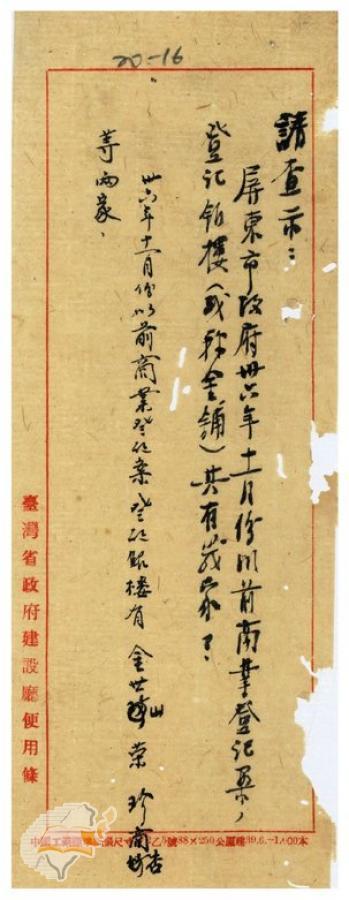 20-16
請查示：
屏東市政府卅六年十一月份以前商業登記案，
登記銀樓（或稱金舖）共有幾家？
卅六年十一月份以前商業登記案登記銀樓有金世 榮珍商
等兩家、
臺灣省政府建設廳便用條
中國工
號88×250公厘
39.6.